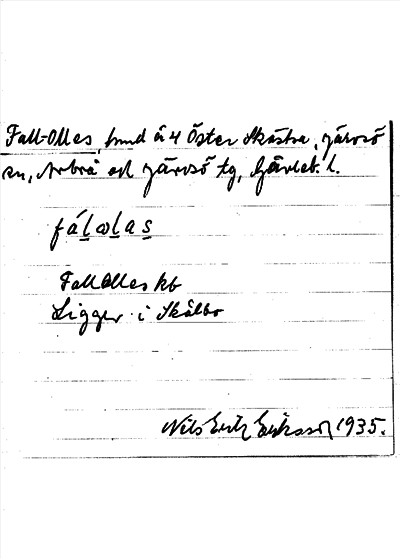 Fall-Olles, hmd å 4 Öster Skästra, Järvsö
sn, Arbrå och Järvsö tg, Gävleb. l.
fálωlas
Fall Olles kb
Ligger i Skålbo
Nils Erik Eriksson 1935.